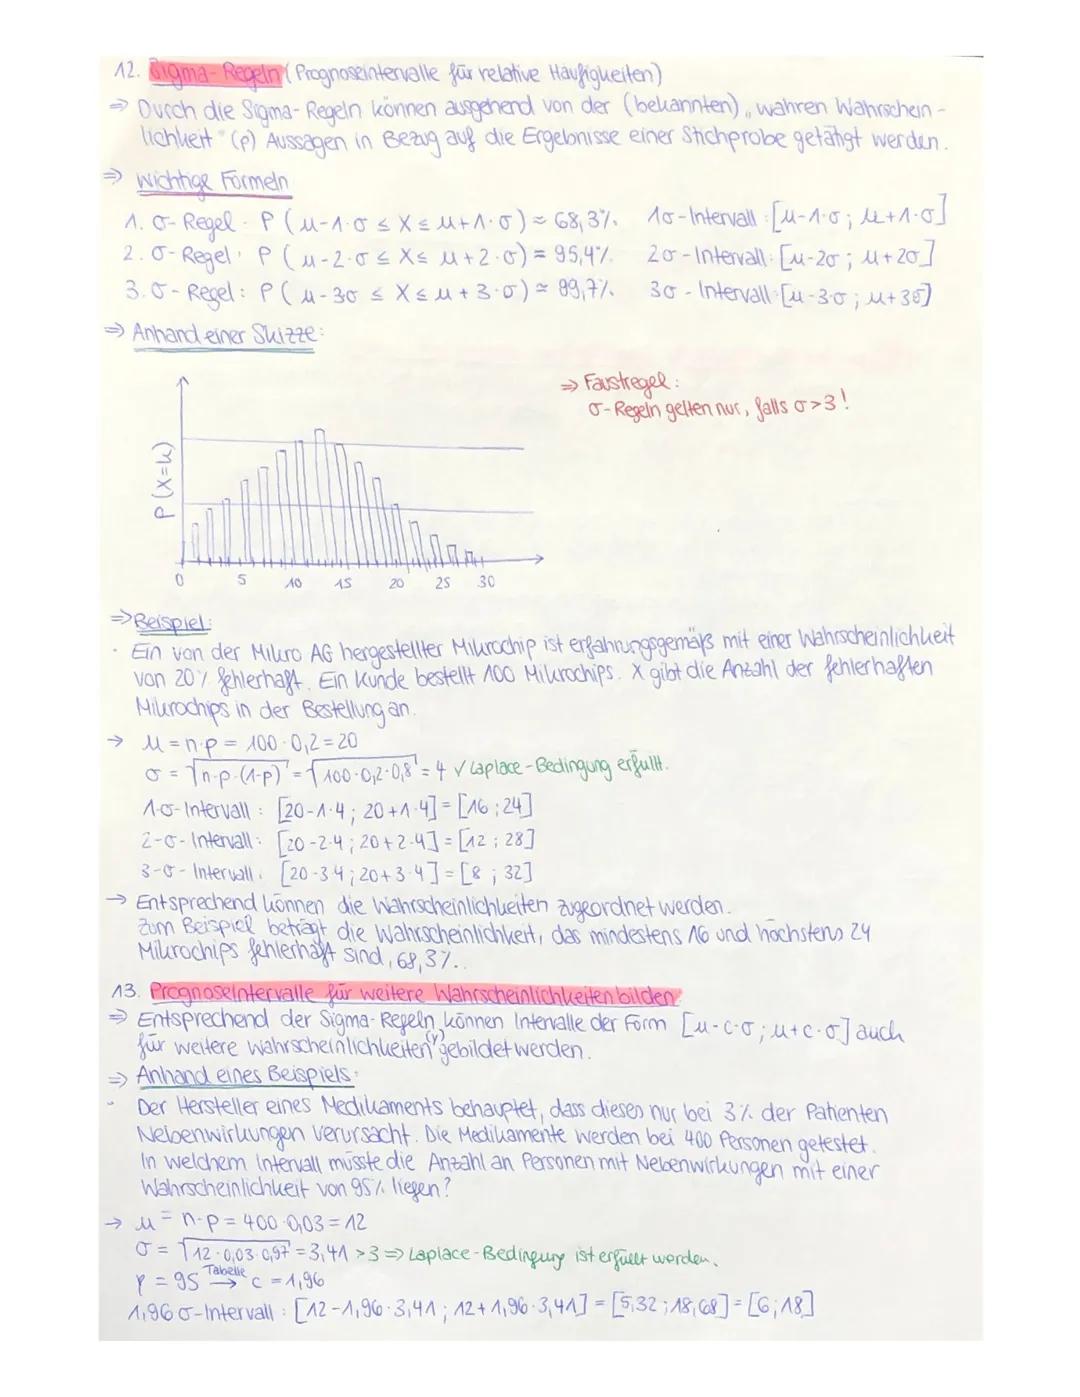 12. Sigma-Regeln (Prognoseintervalle für relative Häufigkeiten)
⇒ Durch die Sigma-Regeln können ausgehend von der (bekannten) „wahren Wahrschein-
lichkeit" (p) Aussagen in Bezug auf die Ergebnisse einer Stichprobe getätigt werden.
⇒ wichtige Formeln
1. σ-Regel: P(μ-1·σ ≤ X ≤ μ+1·σ) ≈ 68,3% 1σ-Intervall: [μ-1·σ; μ+1·σ]
2. σ-Regel: P(μ-2·σ ≤ X ≤ μ+2·σ) ≈ 95,4% 2σ-Intervall: [μ-2σ; μ+2σ]
3. σ-Regel: P(μ-3σ ≤ X ≤ μ+3·σ) ≈ 99,7% 3σ-Intervall: [μ-3·σ; μ+3σ]
⇒ Anhand einer Skizze:
⇒ Faustregel:
σ-Regeln gelten nur, falls σ>3!
P(X=k)
0 5 10 15 20 25 30
⇒ Beispiel:
· Ein von der Mikro AG hergestellter Mikrochip ist erfahrungsgemäß mit einer Wahrscheinlichkeit
von 20% fehlerhaft. Ein Kunde bestellt 100 Mikrochips. X gibt die Anzahl der fehlerhaften
Mikrochips in der Bestellung an.
→ μ = n·p = 100·0,2 = 20
σ = √n·p·(1-p) = √100·0,2·0,8 = 4 ✓ Laplace-Bedingung erfüllt.
1-σ-Intervall: [20-1·4; 20+1·4] = [16; 24]
2-σ-Intervall: [20-2·4; 20+2·4] = [12; 28]
3-σ-Intervall: [20-3·4; 20+3·4] = [8; 32]
→ Entsprechend können die Wahrscheinlichkeiten zugeordnet werden.
Zum Beispiel beträgt die Wahrscheinlichkeit, das mindestens 16 und höchstens 24
Mikrochips fehlerhaft sind, 68,3%.
13. Prognoseintervalle für weitere Wahrscheinlichkeiten bilden:
⇒ Entsprechend der Sigma-Regeln können Intervalle der Form [μ-c·σ; μ+c·σ] auch
für weitere Wahrscheinlichkeiten (γ) gebildet werden.
⇒ Anhand eines Beispiels:
- Der Hersteller eines Medikaments behauptet, dass dieses nur bei 3% der Patienten
Nebenwirkungen verursacht. Die Medikamente werden bei 400 Personen getestet.
In welchem Intervall müsste die Anzahl an Personen mit Nebenwirkungen mit einer
Wahrscheinlichkeit von 95% liegen?
→ μ = n·p = 400·0,03 = 12
σ = √12·0,03·0,97 = 3,41 >3 ⇒ Laplace-Bedingung ist erfüllt worden.
γ = 95 Tabelle → c = 1,96
1,96σ-Intervall: [12-1,96·3,41; 12+1,96·3,41] = [5,32; 18,68] = [6; 18]